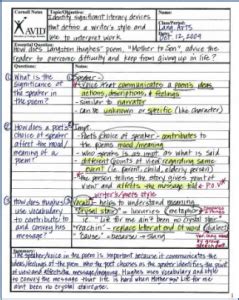 Cornell Notes
AVID
Topic/Objective:
Identify significant literary devices
that define a writer's style and
use to interpret work.
Name:
Class/Period:
Lang. Arts
Date:
12, 2009
Essential Question:
How does Langston Hughes' poem, "Mother to Son", advise the
reader to overcome difficulty and keep from giving up in life?
Questions:
Notes:
① What is the
significance of
the speaker
in the poem?
Speaker -
voice that communicates a poem's ideas,
actions, descriptions, & feelings
- similar to narrator
- can be unknown or specific (like character)
② How does a poet's
choice of speaker
affect the mood/
meaning of a
poem?
- Poet's choice of speaker - contributes to
the poem's mood/meaning
- who speaks is as imp. as what is said
- different points of view regarding same
event (ie. parent, child, elderly person)
the person telling the story gives point of
view and affects the message
③ How does Hughes
use vocabulary
to contribute to
and convey his
message?
- helps to understand meaning
"crystal stair" = luxuries (metaphor)
- life for me ain't been no crystal stair
"reachin'" - replace letter at end of word (dialect)
"'cause" = because = slang
Summary:
The speaker/voice in the poem is important because it communicates the
ideas/feelings of the poem. Who the poet chooses as the speaker identifies the point
of view and affects the meaning. Hughes uses vocabulary and style
to convey the message that life is hard when
been no crystal staircase.